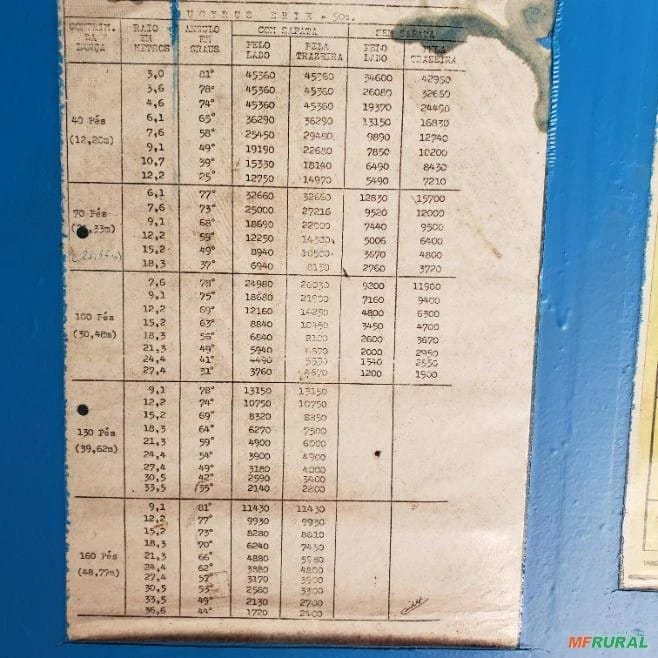 UCYRUS ERIE - 50
COMPRIM. DA LANÇA RAIO EM METROS ANGULO EM GRAUS COM SAPATA SEM SAPATA
PELO LADO PELA TRAZEIRA PELO LADO PELA TRASEIRA
3,0 81° 45360 45360 34600 42950
3,6 78° 45360 45360 26080 32660
4,6 74° 45360 45360 19370 24490
40 Pés 6,1 65° 36290 36290 13150 16830
7,6 58° 25450 29480 9890 12740
(12,20m) 9,1 49° 19190 22680 7850 10200
10,7 39° 15330 18140 6490 8430
12,2 25° 12750 14970 5490 7210
6,1 77° 32660 32660 12830 15700
70 Pés 7,6 73° 25000 27216 9520 12000
,33m) 9,1 68° 18690 22000 7440 9500
12,2 59° 12250 14300 5006 6400
15,2 49° 8940 10500 3670 4800
18,3 37° 6940 8130 2760 3720
7,6 78° 24980 26030 9200 11900
9,1 75° 18680 21900 7160 9400
100 Pés 12,2 69° 12160 14250 4800 6300
15,2 63° 8840 3450 4700
(30,48m) 18,3 56° 6640 2600 3670
21,3 49° 5940 2000 2950
24,4 41° 4490 1540
27,4 31° 3760 1200 1900
9,1 78° 13150 13150
12,2 74° 10750 10750
15,2 69° 8320 8350
130 Pés 18,3 64° 6270 7500
21,3 59° 4900 6000
(39,62m) 24,4 54° 3900 4900
27,4 49° 3180 4000
30,5 42° 2590 3400
33,5 35° 2140 2800
9,1 81° 11430 11430
12,2 77° 9930 9930
15,2 73° 8280 8610
18,3 70° 6240 7430
160 Pés 21,3 66° 4880 5980
(48,77m) 24,4 62° 3880 4800
27,4 57° 3170 3900
30,5 53° 2580 3300
33,5 49° 2130 2700
36,6 44° 1720 2400
MFRURAL